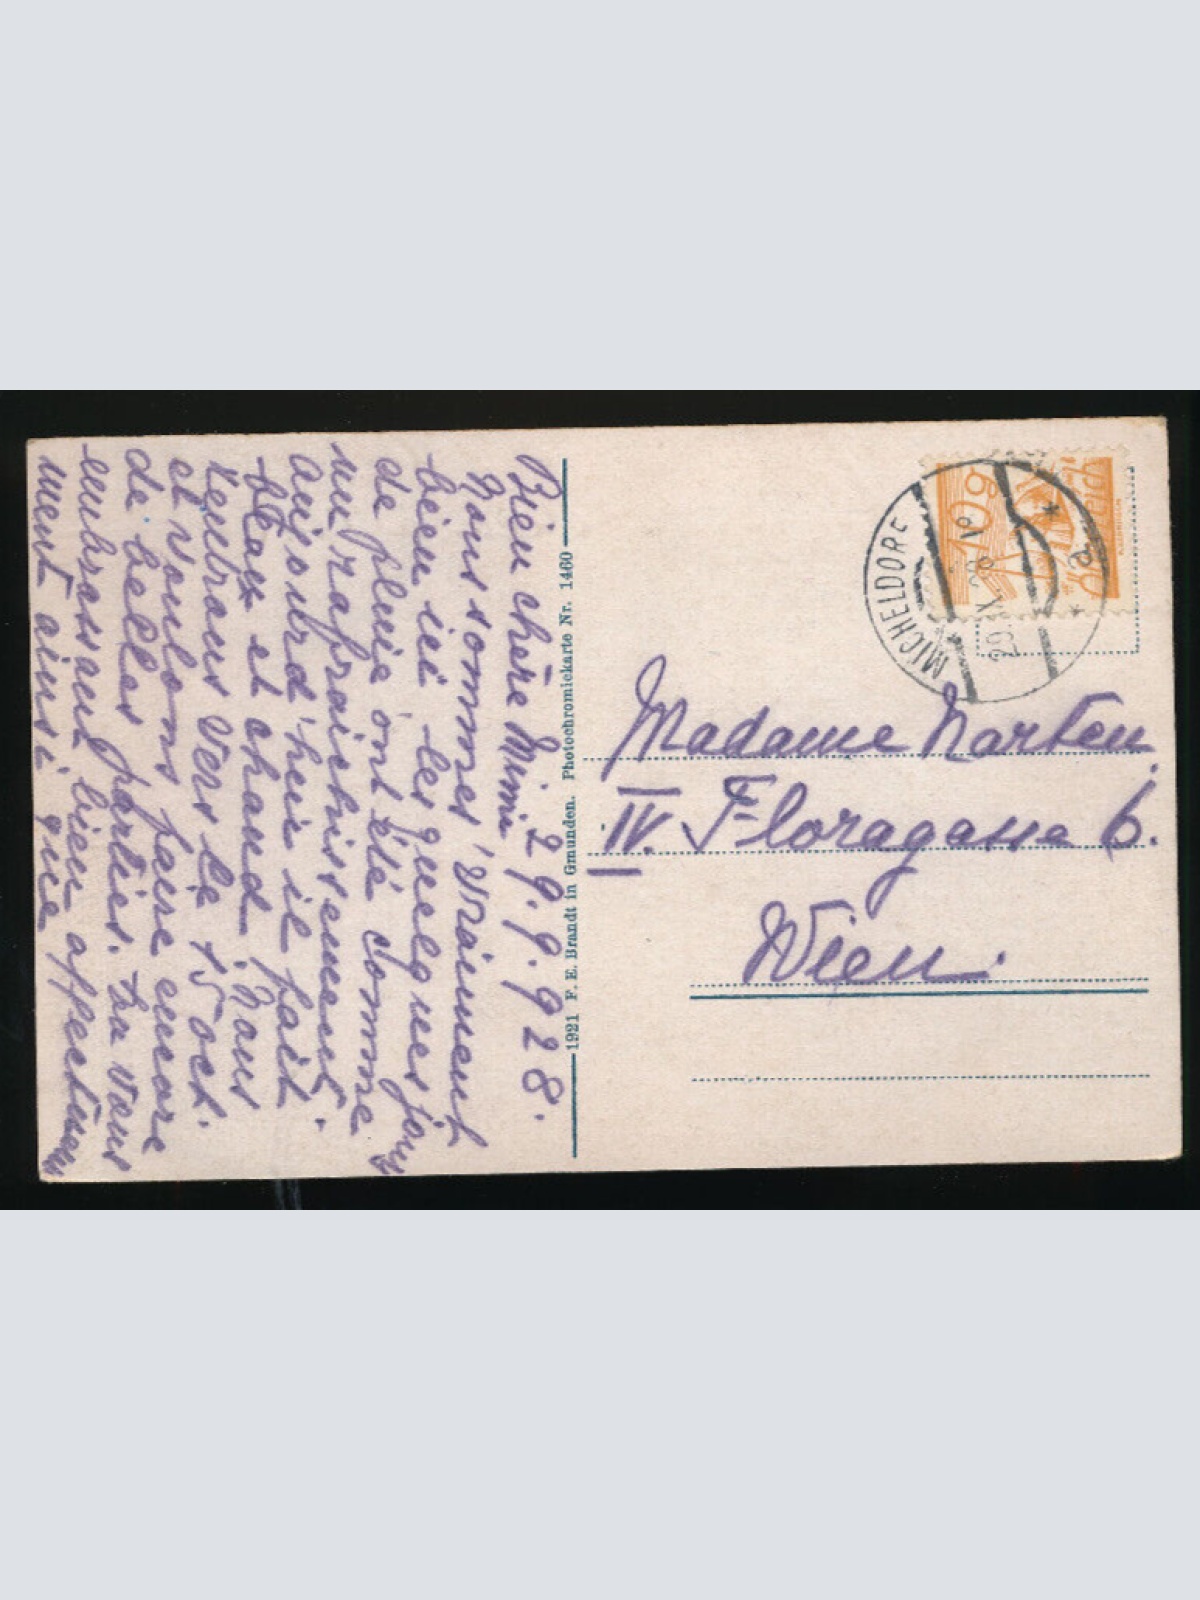 Bien chère Mimi 29.9.928.
Nous sommes vraiment
bien ici les quelques jours
de pluie ont été comme
un rafraichissement.
Aujourd'hui il fait
beau et chaud. Nous
rentrons vers le 15 oct.
et voulons faire encore
de belles parties. En vous
embrassant bien affectueuse
ment ainsi que
1921 F. E. Brandt in Gmunden. Photochromiekarte Nr. 1460
MICHELDORF
29.IX.28
* a *
10g
Madame Narten
IV. Floragasse 6.
Wien.